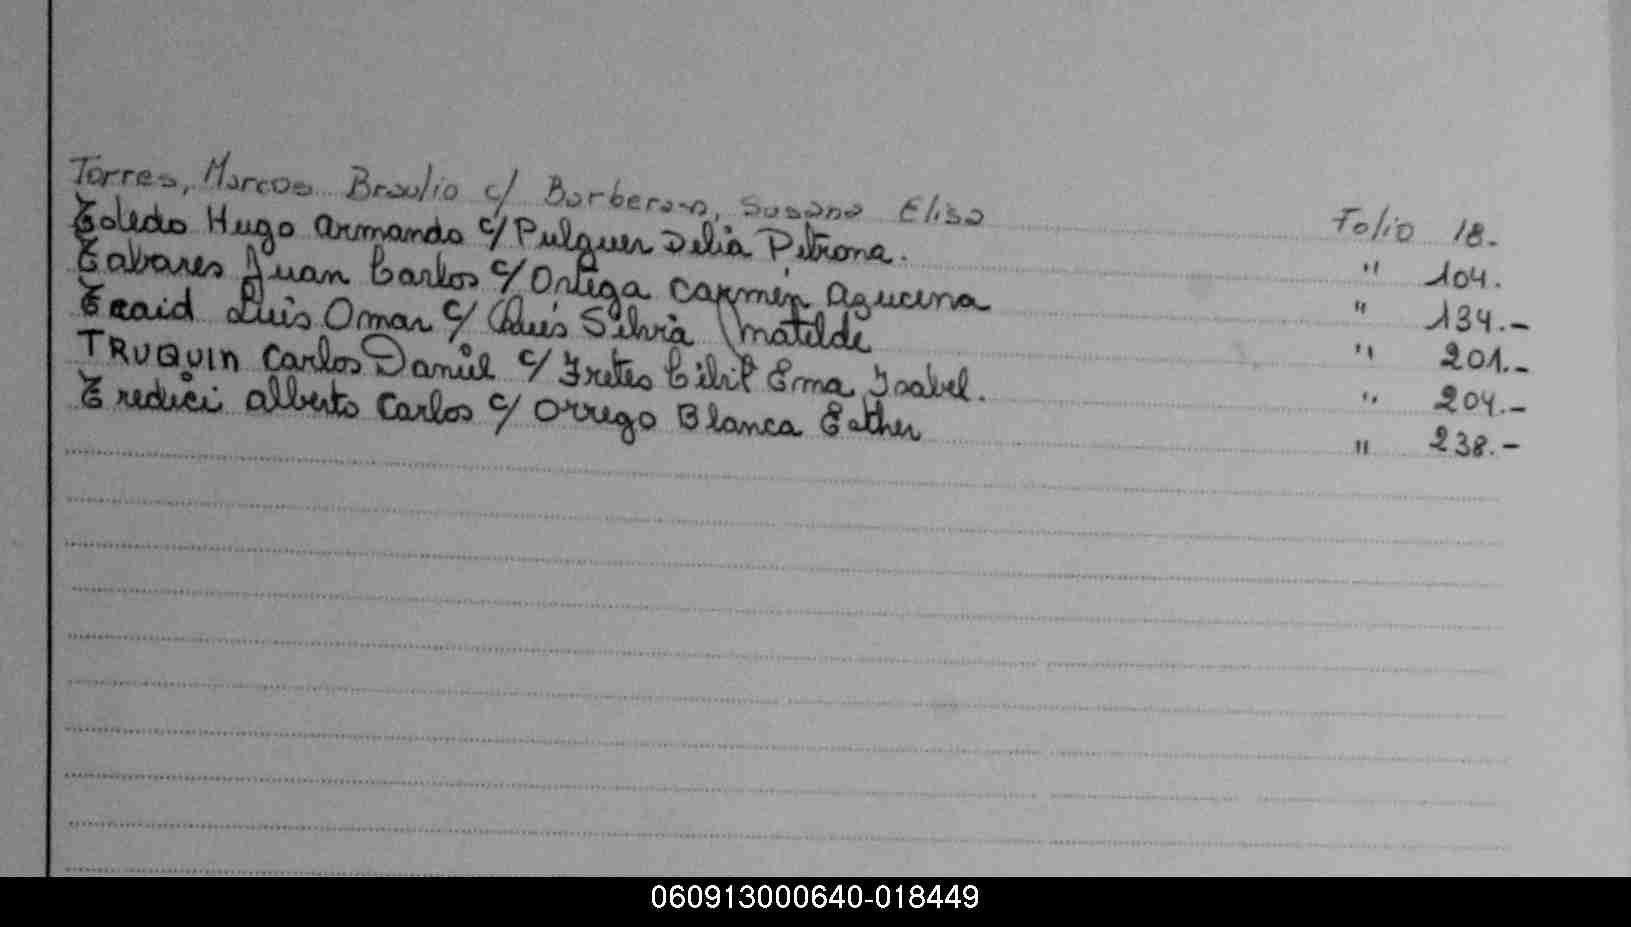 Torres, Marcos Braulio c/ Barberan, Susana Elisa Folio 18.
Toledo Hugo Armando c/ Pulguer Delia Petrona. " 104.
Tabares Juan Carlos c/ Ortega Carmen Azucena " 134.-
Traid Luis Omar c/ Silvia Matilde " 201.-
TRUQUIN Carlos Daniel c/ Fretes Ema Isabel. " 204.-
Tredici Alberto Carlos c/ Orrego Blanca Esther " 238.-
060913000640-018449